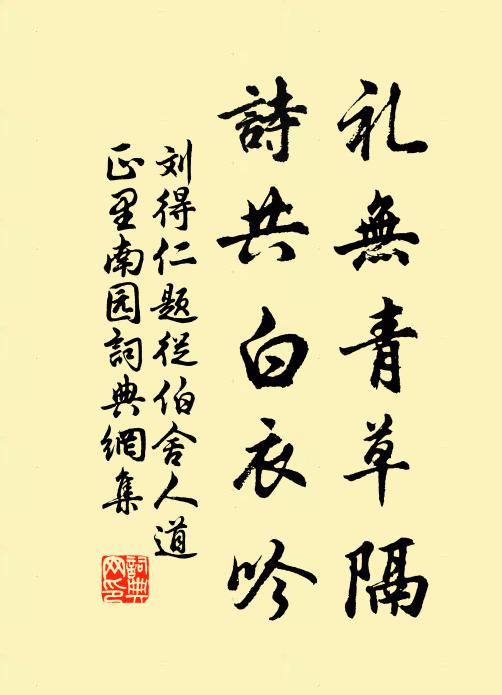 礼無青草隔
詩共白衣吟
刘得仁题從伯舍人道
正里南园詞典網集
詞典
网印